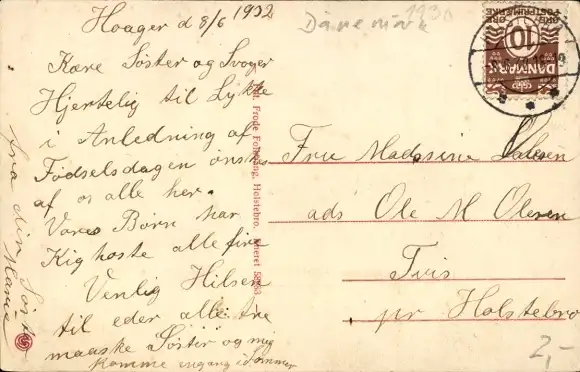 Hoager d 8/6 1932
Kære Søster og Svoger
Hjertelig til Lykke
i Anledning af
Fødselsdagen ønskes
af os alle her.
Vores Børn har
Kighoste alle fire
Venlig Hilsen
til eder alle tre
maaske Søster og mig
komme engang i Sommer
fra din Søster
Marie
Dänemark 1930
10
DANMARK
Fru Madssine Olesen
ads Ole M Olesen
Tvis
pr Holstebro
Frode Holstebro.
2,-